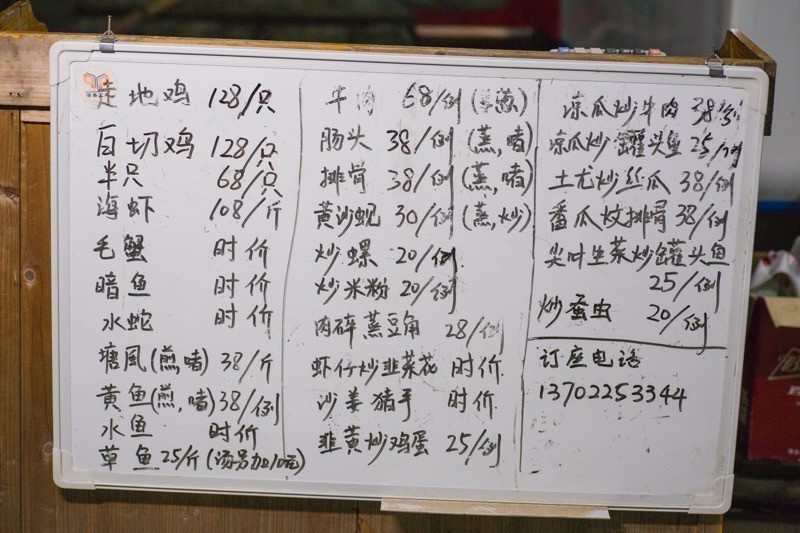 走地鸡 128/只
白切鸡 128/只
半只 68/只
海虾 108/斤
毛蟹 时价
暗鱼 时价
水蛇 时价
塘風(煎,啫) 38/斤
黄鱼(煎,啫) 38/例
水鱼 时价
草鱼 25/斤 (汤另加10元)
牛肉 68/例
肠头 38/例 (蒸,啫)
排骨 38/例 (蒸,啫)
黄沙蚬 30/例 (蒸,炒)
炒螺 20/例
炒米粉 20/例
肉碎蒸豆角 28/例
虾仔炒韭菜花 时价
沙姜猪手 时价
韭黄炒鸡蛋 25/例
凉瓜炒牛肉 38/例
凉瓜炒罐头鱼 25/例
土尤炒丝瓜 38/例
番瓜炆排骨 38/例
尖叶生菜炒罐头鱼
25/例
炒蚕虫 20/例
订座电话
13702253344